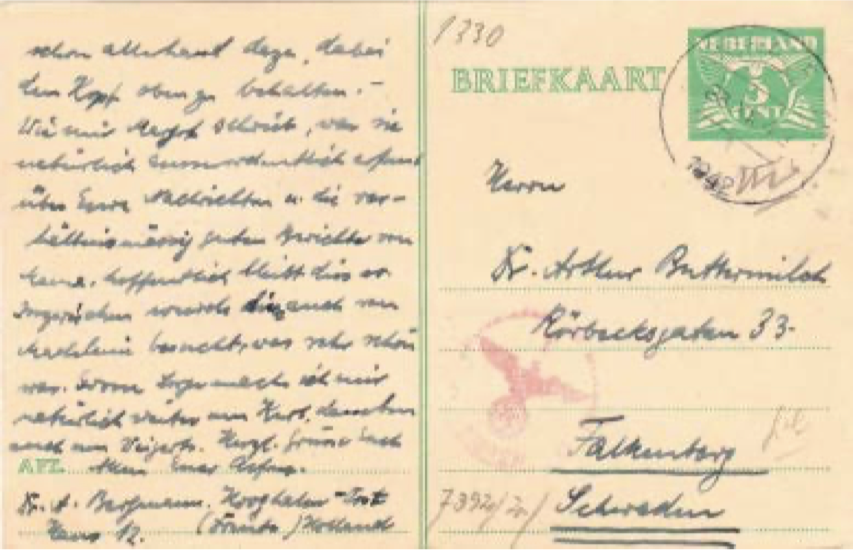 schon allerhand dazu, dabei
den Kopf oben zu behalten. –
Wie mir schrieb, war sie
natürlich ausserordentlich erfreut
über Eure Nachrichten u. die ver-
hältnismässig guten Berichte von
hoffentlich bleibt dies so.
Inzwischen wurde auch von
Madeleine besucht, was sehr schön
war. Sorge mache ich mir
natürlich weiter um Kurt, daneben
auch um Herzl. Grüsse Euch
AFZ. Allen Euer
Dr. A. Bergmann. Hooghalen-Oost
12. (Drente) Holland
1330
BRIEFKAART
NEDERLAND
5
CENT
1942
Herrn
Dr. Arthur Buttermilch
Rörbecksgatan 33.
Falkenberg
Schweden